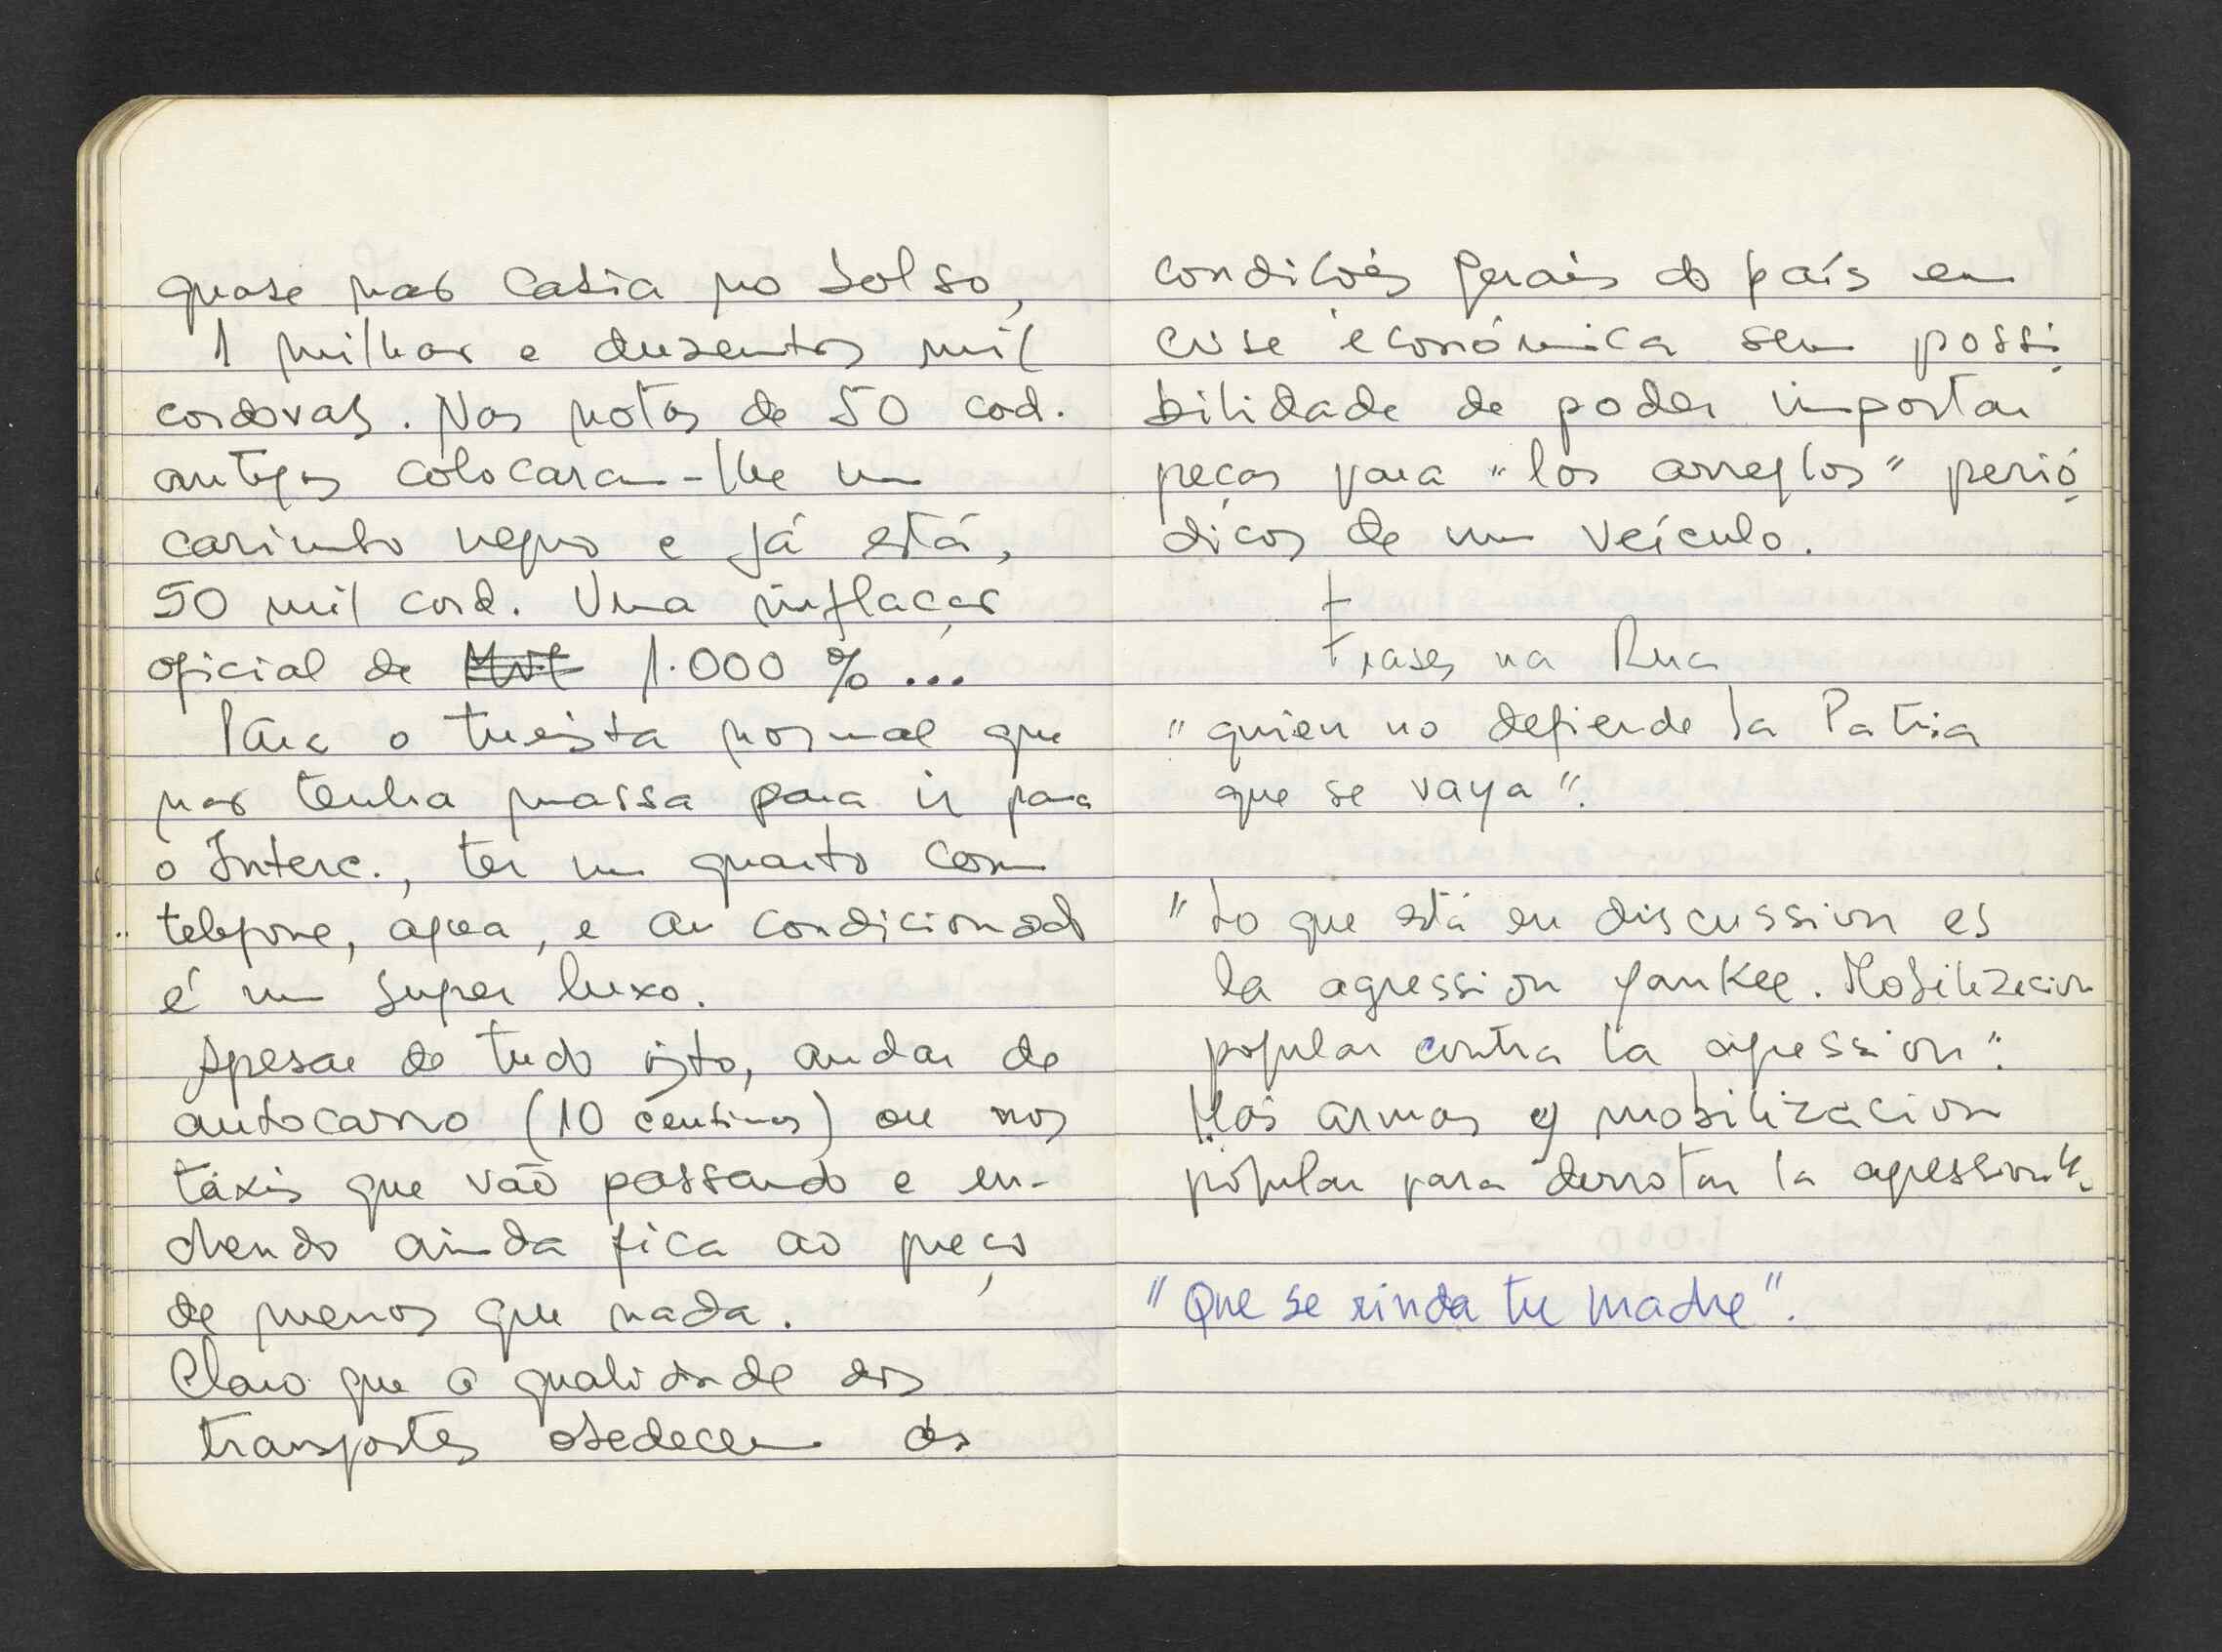 quase não cabia no bolso,
1 milhão e duzentos mil
cordovas. Nas notas de 50 cod.
antigas colocaram-lhe um
carimbo negro e já está,
50 mil cord. Uma inflação
oficial de Mil 1.000 % ...
Para o turista normal que
não tenha massa para ir para
o Interc., ter um quarto com
telefone, água, e ar condicionado
é um super luxo.
Apesar de tudo isto, andar de
autocarro (10 centimos) ou nos
táxis que vão passando e en-
chendo ainda fica ao preço
de menos que nada.
Claro que a qualidade dos
transportes obedecem ás
condições gerais do país em
crise económica sem possi
bilidade de poder importar
peças para "los arreglos" perió
dicos de um veículo.
Frases na Rua
"quien no defiende la Patria
que se vaya".
"Lo que está en discussion es
la agression yankee. Mobilizacion
popular contra la agression".
Mas armas y mobilizacion
popular para derrotar la agression".
"Que se rinda tu madre".